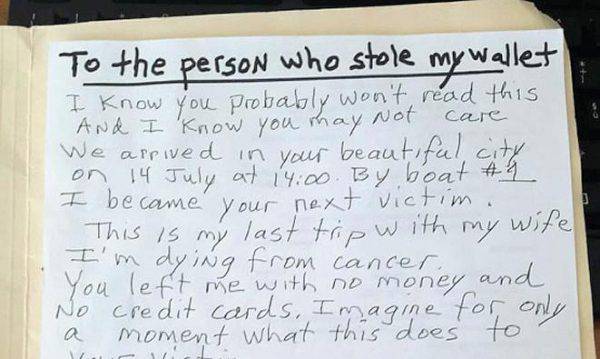 To the person who stole my wallet
I know you probably won't read this
And I know you may not care
We arrived in your beautiful city
on 14 July at 14:00. By boat #4
I became your next victim.
This is my last trip with my wife
I'm dying from cancer.
You left me with no money and
No credit cards. Imagine for only
a moment what this does to